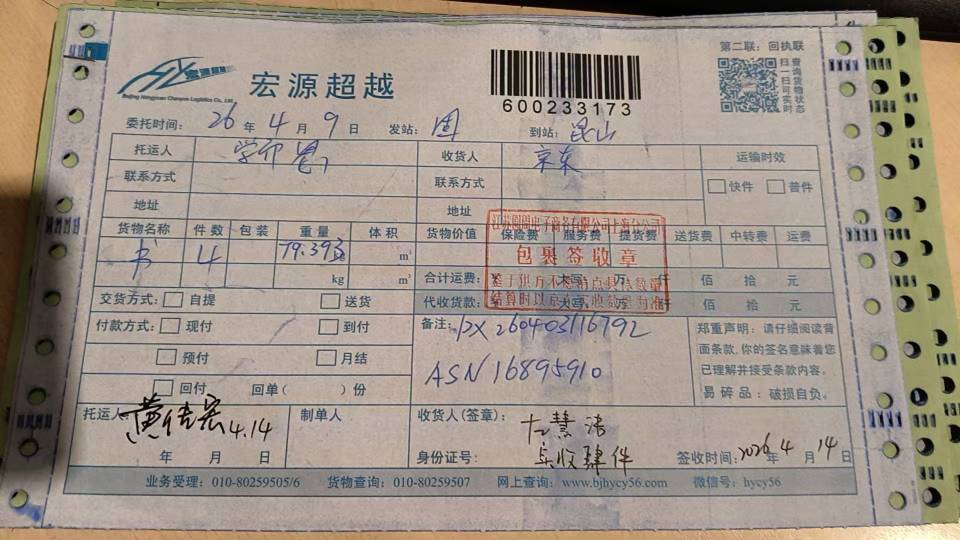 第二联：回执联
宏源超越
宏源超越
Beijing Hongyuan Chaoyue Logistics Co., Ltd.
600233173
扫一扫可实时
查询货物状态
委托时间：26年4月9日 发站： 到站：昆山
托运人 收货人 京东 运输时效
联系方式 联系方式 快件 普件
地址 地址
货物名称 件数 包装 重量 体积 货物价值 保险费 服务费 提货费 送货费 中转费 运费
书 4 79.39 m³
kg m³ 合计运费： 万 仟 佰 拾 元
交货方式： 自提 送货 代收货款： 万 仟 佰 拾 元
江苏圆周电子商务有限公司上海分公司
包裹签收章
付款方式： 现付 到付 备注： PX260403116792
预付 月结 ASN 16895910
回付 回单( )份
郑重声明：请仔细阅读背
面条款，你的签名意味着您
已理解并接受条款内容。
易碎品：破损自负。
托运人 4.14 制单人 收货人(签章)：
年 月 日 身份证号： 实收肆件 签收时间：2026年4月14日
业务受理：010-80259505/6 货物查询：010-80259507 网上查询：www.bjhycy56.com 微信号：hycy56